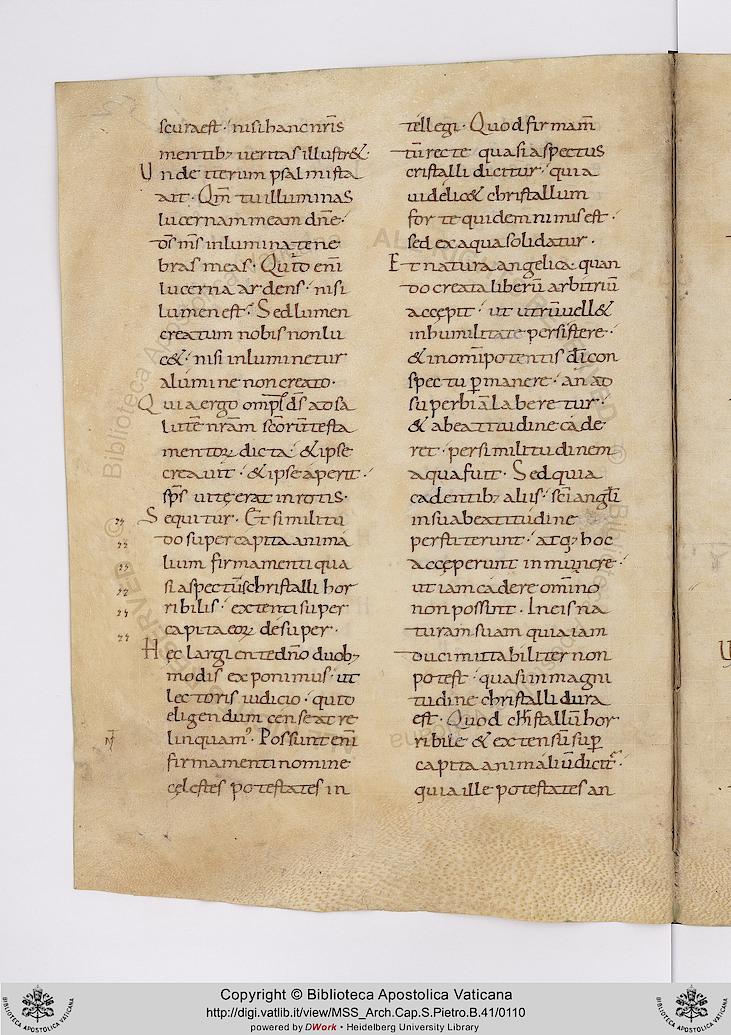 scura est · nisi hanc nr̄is
mentib; ueritas illustr& ·
Unde iterum psalmista
ait · Qm̄ tu illuminas
lucernam meam dn̄e ·
ds̄ ms̄ inlumina tene
bras meas · Quid eni
lucerna ardens · nisi
lumen est · Sed lumen
creatum nobis non lu
c& · nisi inluminetur
a lumine non creato ·
Quia ergo omp̄s ds̄ ad sa
lutē nr̄am scōrū testa
mentorꝝ dicta · & ipse
creauit · & ipse aperit ·
sps̄ uitę erat in rotis ·
Sequitur · Et similitu
do super capita animā
lium firmamenti qua
si aspectus christalli hor
ribilis · extenti super
capita eorꝝ desuper ·
Hec largiente dn̄o duob;
modis exponimus · ut
lectoris iudicio · quid
eligendum censeat re
linquam᷒ · Possunt eni
firmamenti nomine
cęlestes potestates in
tellegi · Quod firmam̄
tū recte quasi aspectus
cristalli dicitur · quia
uidelic& christallum
forte quidem nimis est ·
sed ex aqua solidatur ·
Et natura angelica quan
do creata liberū arbitriū
accepit · ut utrū uell&
in humilitate persistere ·
& in omīpotentis dī con
spectu p̱manere · an ad
superbiā laberetur ·
& a beatitudine cade
ret · per similitudinem
aqua fuit · Sed quia
cadentib; aliis · sc̄i angl̄i
in sua beatitudine
perstiterunt · atq; hoc
acceperunt in munere ·
ut iam cadere omīno
non possint · In eis na
turam suam quia iam
duci mutabiliter non
potest · quasi in magni
tudine christalli dura
est · Quod christallū hor
ribile & extensū sup̄
capita animaliū dicit᷑ ·
quia ille potestates an
Copyright © Biblioteca Apostolica Vaticana
http://digi.vatlib.it/view/MSS_Arch.Cap.S.Pietro.B.41/0110
powered by DWork • Heidelberg University Library